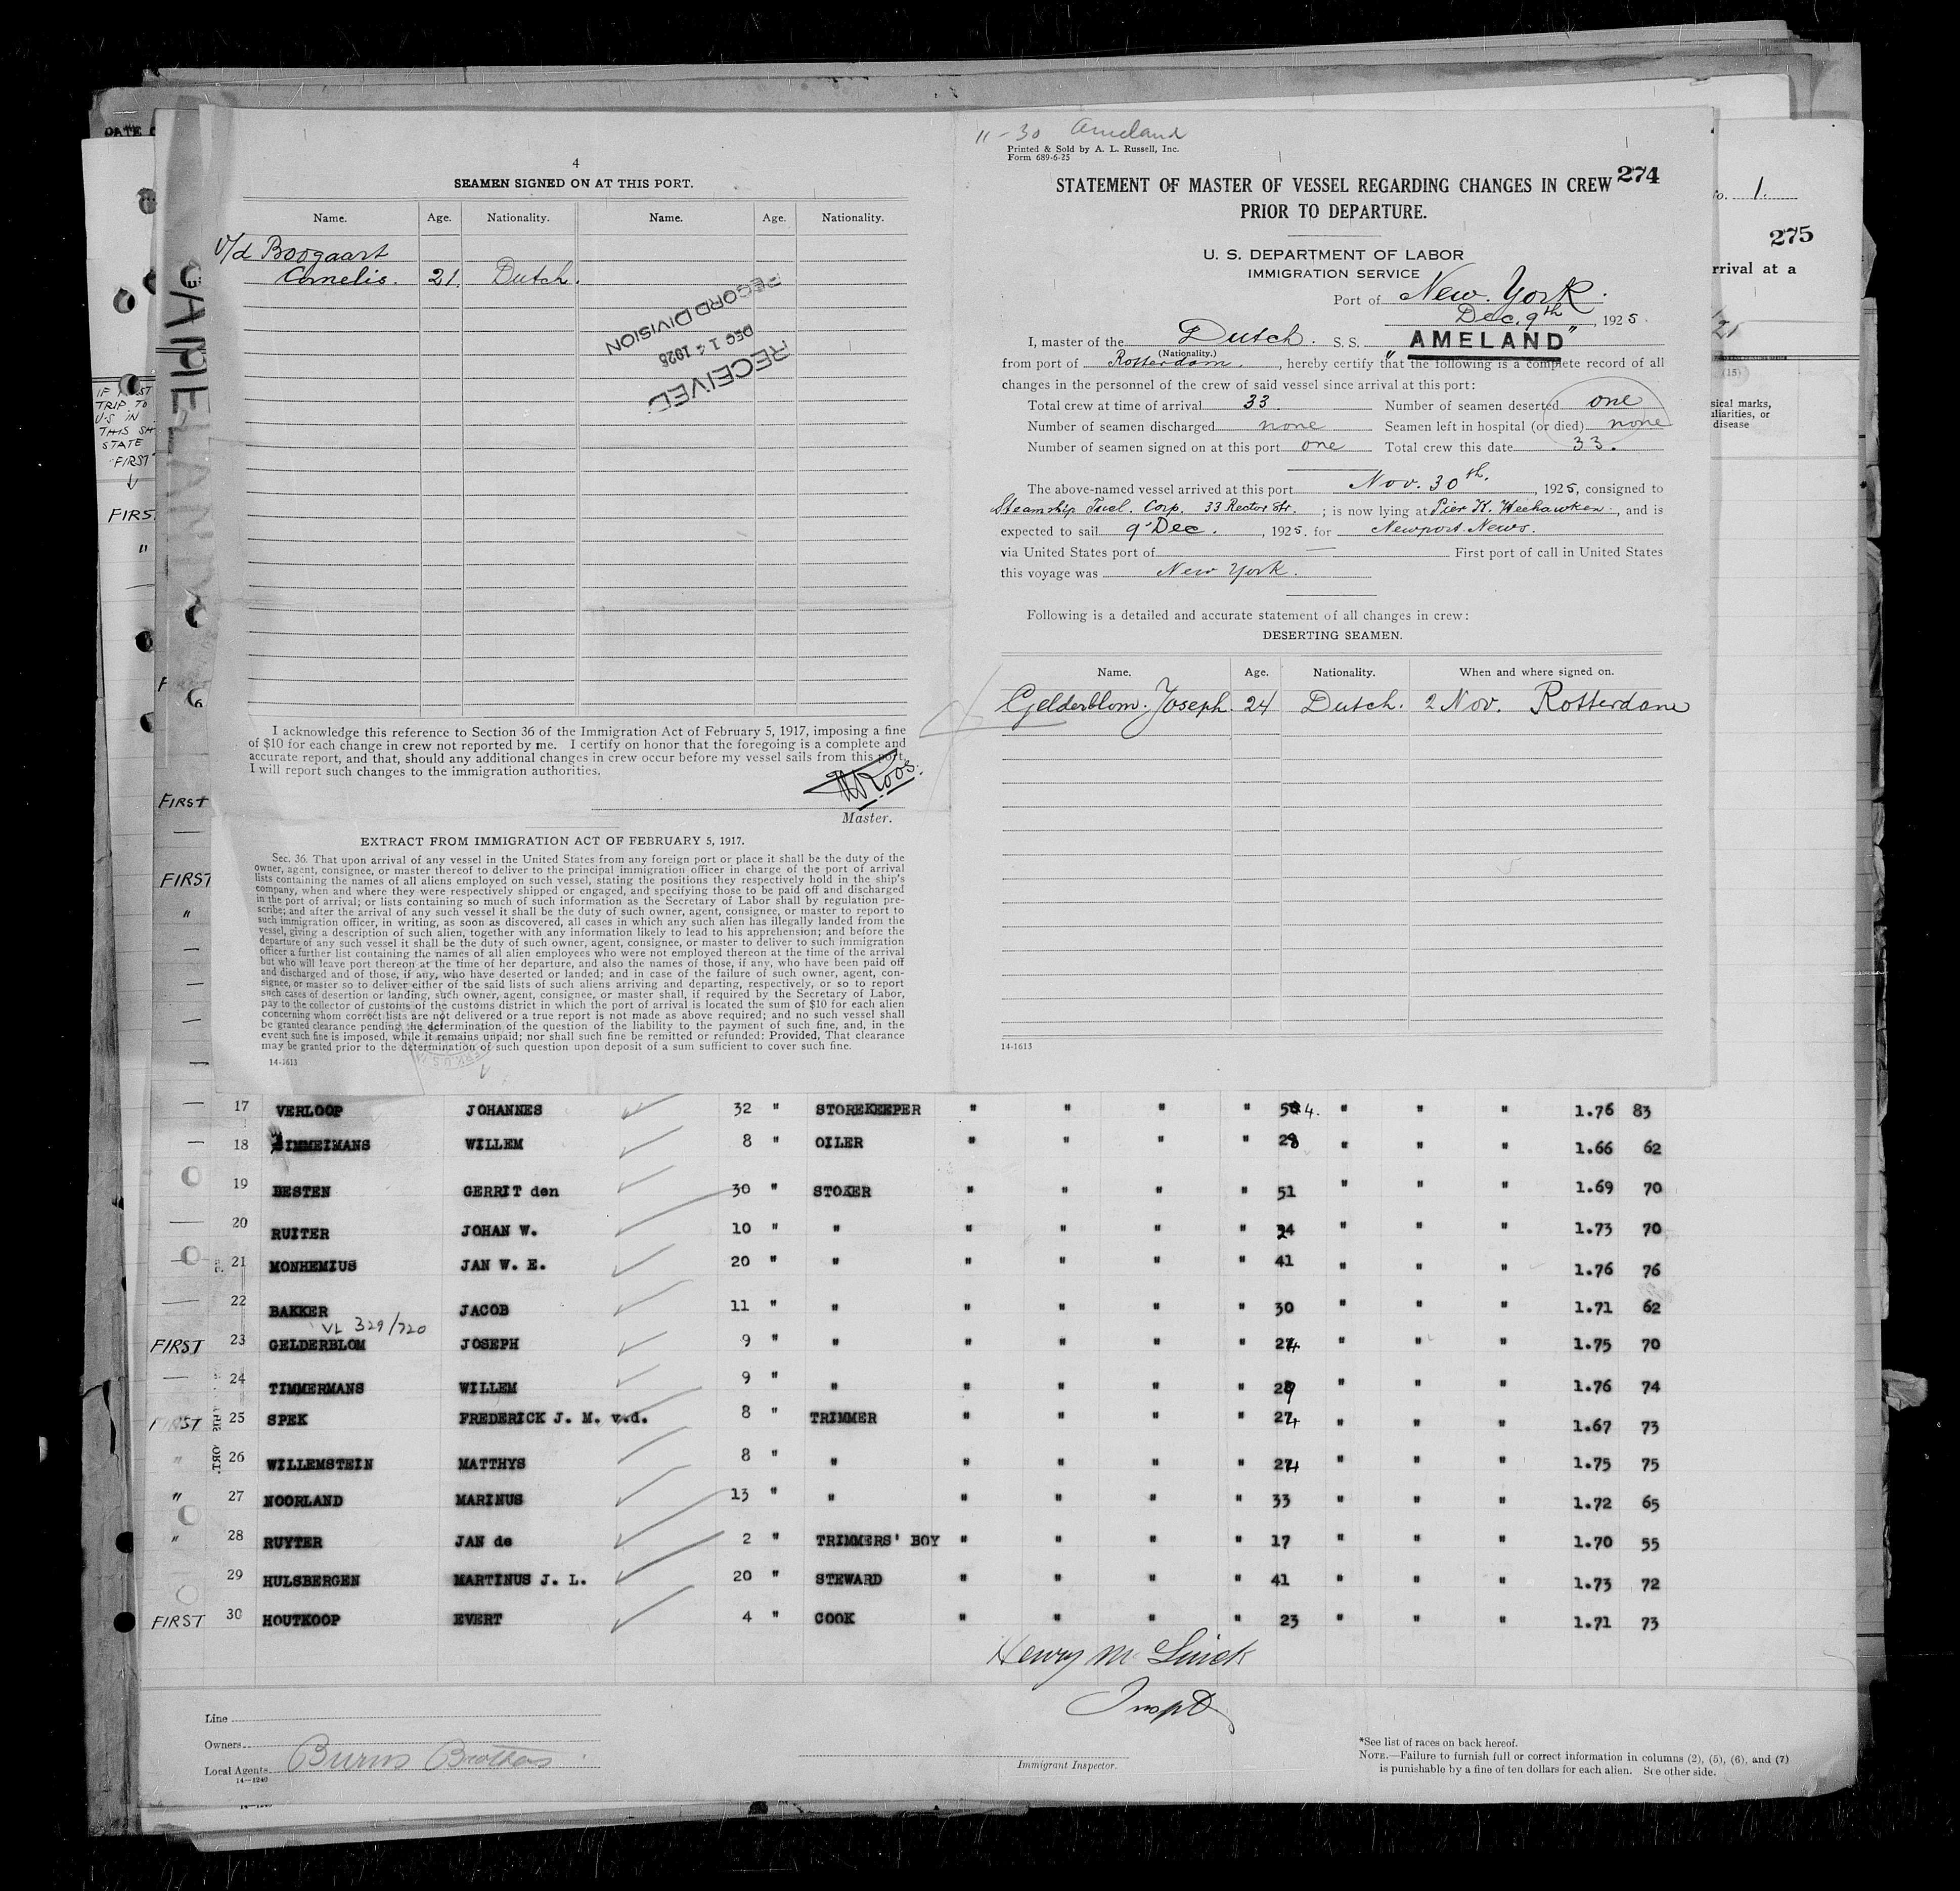 DATE
11-30 Ameland
Printed & Sold by A. L. Russell, Inc.
Form 689-6-25
4
SEAMEN SIGNED ON AT THIS PORT.
Name. Age. Nationality. Name. Age. Nationality.
v/d Boogaart
Cornelis. 21. Dutch.
RECEIVED
DEC 14 1925
RECORD DIVISION
AMELAND
I acknowledge this reference to Section 36 of the Immigration Act of February 5, 1917, imposing a fine
of $10 for each change in crew not reported by me. I certify on honor that the foregoing is a complete and
accurate report, and that, should any additional changes in crew occur before my vessel sails from this port,
I will report such changes to the immigration authorities.
Roos.
Master.
EXTRACT FROM IMMIGRATION ACT OF FEBRUARY 5, 1917.
Sec. 36. That upon arrival of any vessel in the United States from any foreign port or place it shall be the duty of the
owner, agent, consignee, or master thereof to deliver to the principal immigration officer in charge of the port of arrival
lists containing the names of all aliens employed on such vessel, stating the positions they respectively hold in the ship's
company, when and where they were respectively shipped or engaged, and specifying those to be paid off and discharged
in the port of arrival; or lists containing so much of such information as the Secretary of Labor shall by regulation pre-
scribe; and after the arrival of any such vessel it shall be the duty of such owner, agent, consignee, or master to report to
such immigration officer, in writing, as soon as discovered, all cases in which any such alien has illegally landed from the
vessel, giving a description of such alien, together with any information likely to lead to his apprehension; and before the
departure of any such vessel it shall be the duty of such owner, agent, consignee, or master to deliver to such immigration
officer a further list containing the names of all alien employees who were not employed thereon at the time of the arrival
but who will leave port thereon at the time of her departure, and also the names of those, if any, who have been paid off
and discharged and of those, if any, who have deserted or landed; and in case of the failure of such owner, agent, con-
signee, or master so to deliver either of the said lists of such aliens arriving and departing, respectively, or so to report
such cases of desertion or landing, such owner, agent, consignee, or master shall, if required by the Secretary of Labor,
pay to the collector of customs of the customs district in which the port of arrival is located the sum of $10 for each alien
concerning whom correct lists are not delivered or a true report is not made as above required; and no such vessel shall
be granted clearance pending the determination of the question of the liability to the payment of such fine, and, in the
event such fine is imposed, while it remains unpaid; nor shall such fine be remitted or refunded: Provided, That clearance
may be granted prior to the determination of such question upon deposit of a sum sufficient to cover such fine.
14-1613
STATEMENT OF MASTER OF VESSEL REGARDING CHANGES IN CREW 274
PRIOR TO DEPARTURE.
U. S. DEPARTMENT OF LABOR
IMMIGRATION SERVICE
Port of New York.
Dec. 9th, 1925.
I, master of the Dutch. S. S. "AMELAND"
(Nationality.)
from port of Rotterdam., hereby certify that the following is a complete record of all
changes in the personnel of the crew of said vessel since arrival at this port:
Total crew at time of arrival 33. Number of seamen deserted one
Number of seamen discharged none Seamen left in hospital (or died) none
Number of seamen signed on at this port one Total crew this date 33.
The above-named vessel arrived at this port Nov. 30th., 1925, consigned to
Steamship Fuel. Corp. 33 Rector Str.; is now lying at Pier K. Weehawken., and is
expected to sail 9 Dec., 1925. for Newport News.
via United States port of — First port of call in United States
this voyage was New York.
Following is a detailed and accurate statement of all changes in crew:
DESERTING SEAMEN.
Name. Age. Nationality. When and where signed on.
Gelderblom. Joseph. 24 Dutch. 2 Nov. Rotterdam
14-1613
No. 1.
275
rrival at a
21
(15)
sical marks,
uliarities, or
disease
TRIP TO
U.S IN
THIS SH
STATE
"FIRST
FIRS
"
FIRST
FIRST
"
17 VERLOOP JOHANNES 32 " STOREKEEPER " " " " 54. " " " 1.76 83
18 WILLEM 8 " OILER " " " " 28 " " " 1.66 62
19 BESTEN GERRIT den 30 " STOKER " " " " 51 " " " 1.69 70
20 RUITER JOHAN W. 10 " " " " " " 24 " " " 1.73 70
21 MONHEMIUS JAN W. E. 20 " " " " " " 41 " " " 1.76 76
22 BAKKER JACOB 11 " " " " " " 30 " " " 1.71 62
VL 329/720
FIRST 23 GELDERBLOM JOSEPH 9 " " " " " " 24 " " " 1.75 70
24 TIMMERMANS WILLEM 9 " " " " " " 29 " " " 1.76 74
FIRST 25 SPEK FREDERICK J. M. v.d. 8 " TRIMMER " " " " 24 " " " 1.67 73
" 26 WILLEMSTEIN MATTHYS 8 " " " " " " 24 " " " 1.75 75
" 27 NOORLAND MARINUS 13 " " " " " " 33 " " " 1.72 65
" 28 RUYTER JAN de 2 " TRIMMERS' BOY " " " " 17 " " " 1.70 55
29 HULSBERGEN MARTINUS J. L. 20 " STEWARD " " " " 41 " " " 1.73 72
FIRST 30 HOUTKOOP EVERT 4 " COOK " " " " 23 " " " 1.71 73
Henry
Inspt
Line
Owners
Local Agents Burns Brothers.
14-1240
Immigrant Inspector.
*See list of races on back hereof.
NOTE.—Failure to furnish full or correct information in columns (2), (5), (6), and (7)
is punishable by a fine of ten dollars for each alien. See other side.